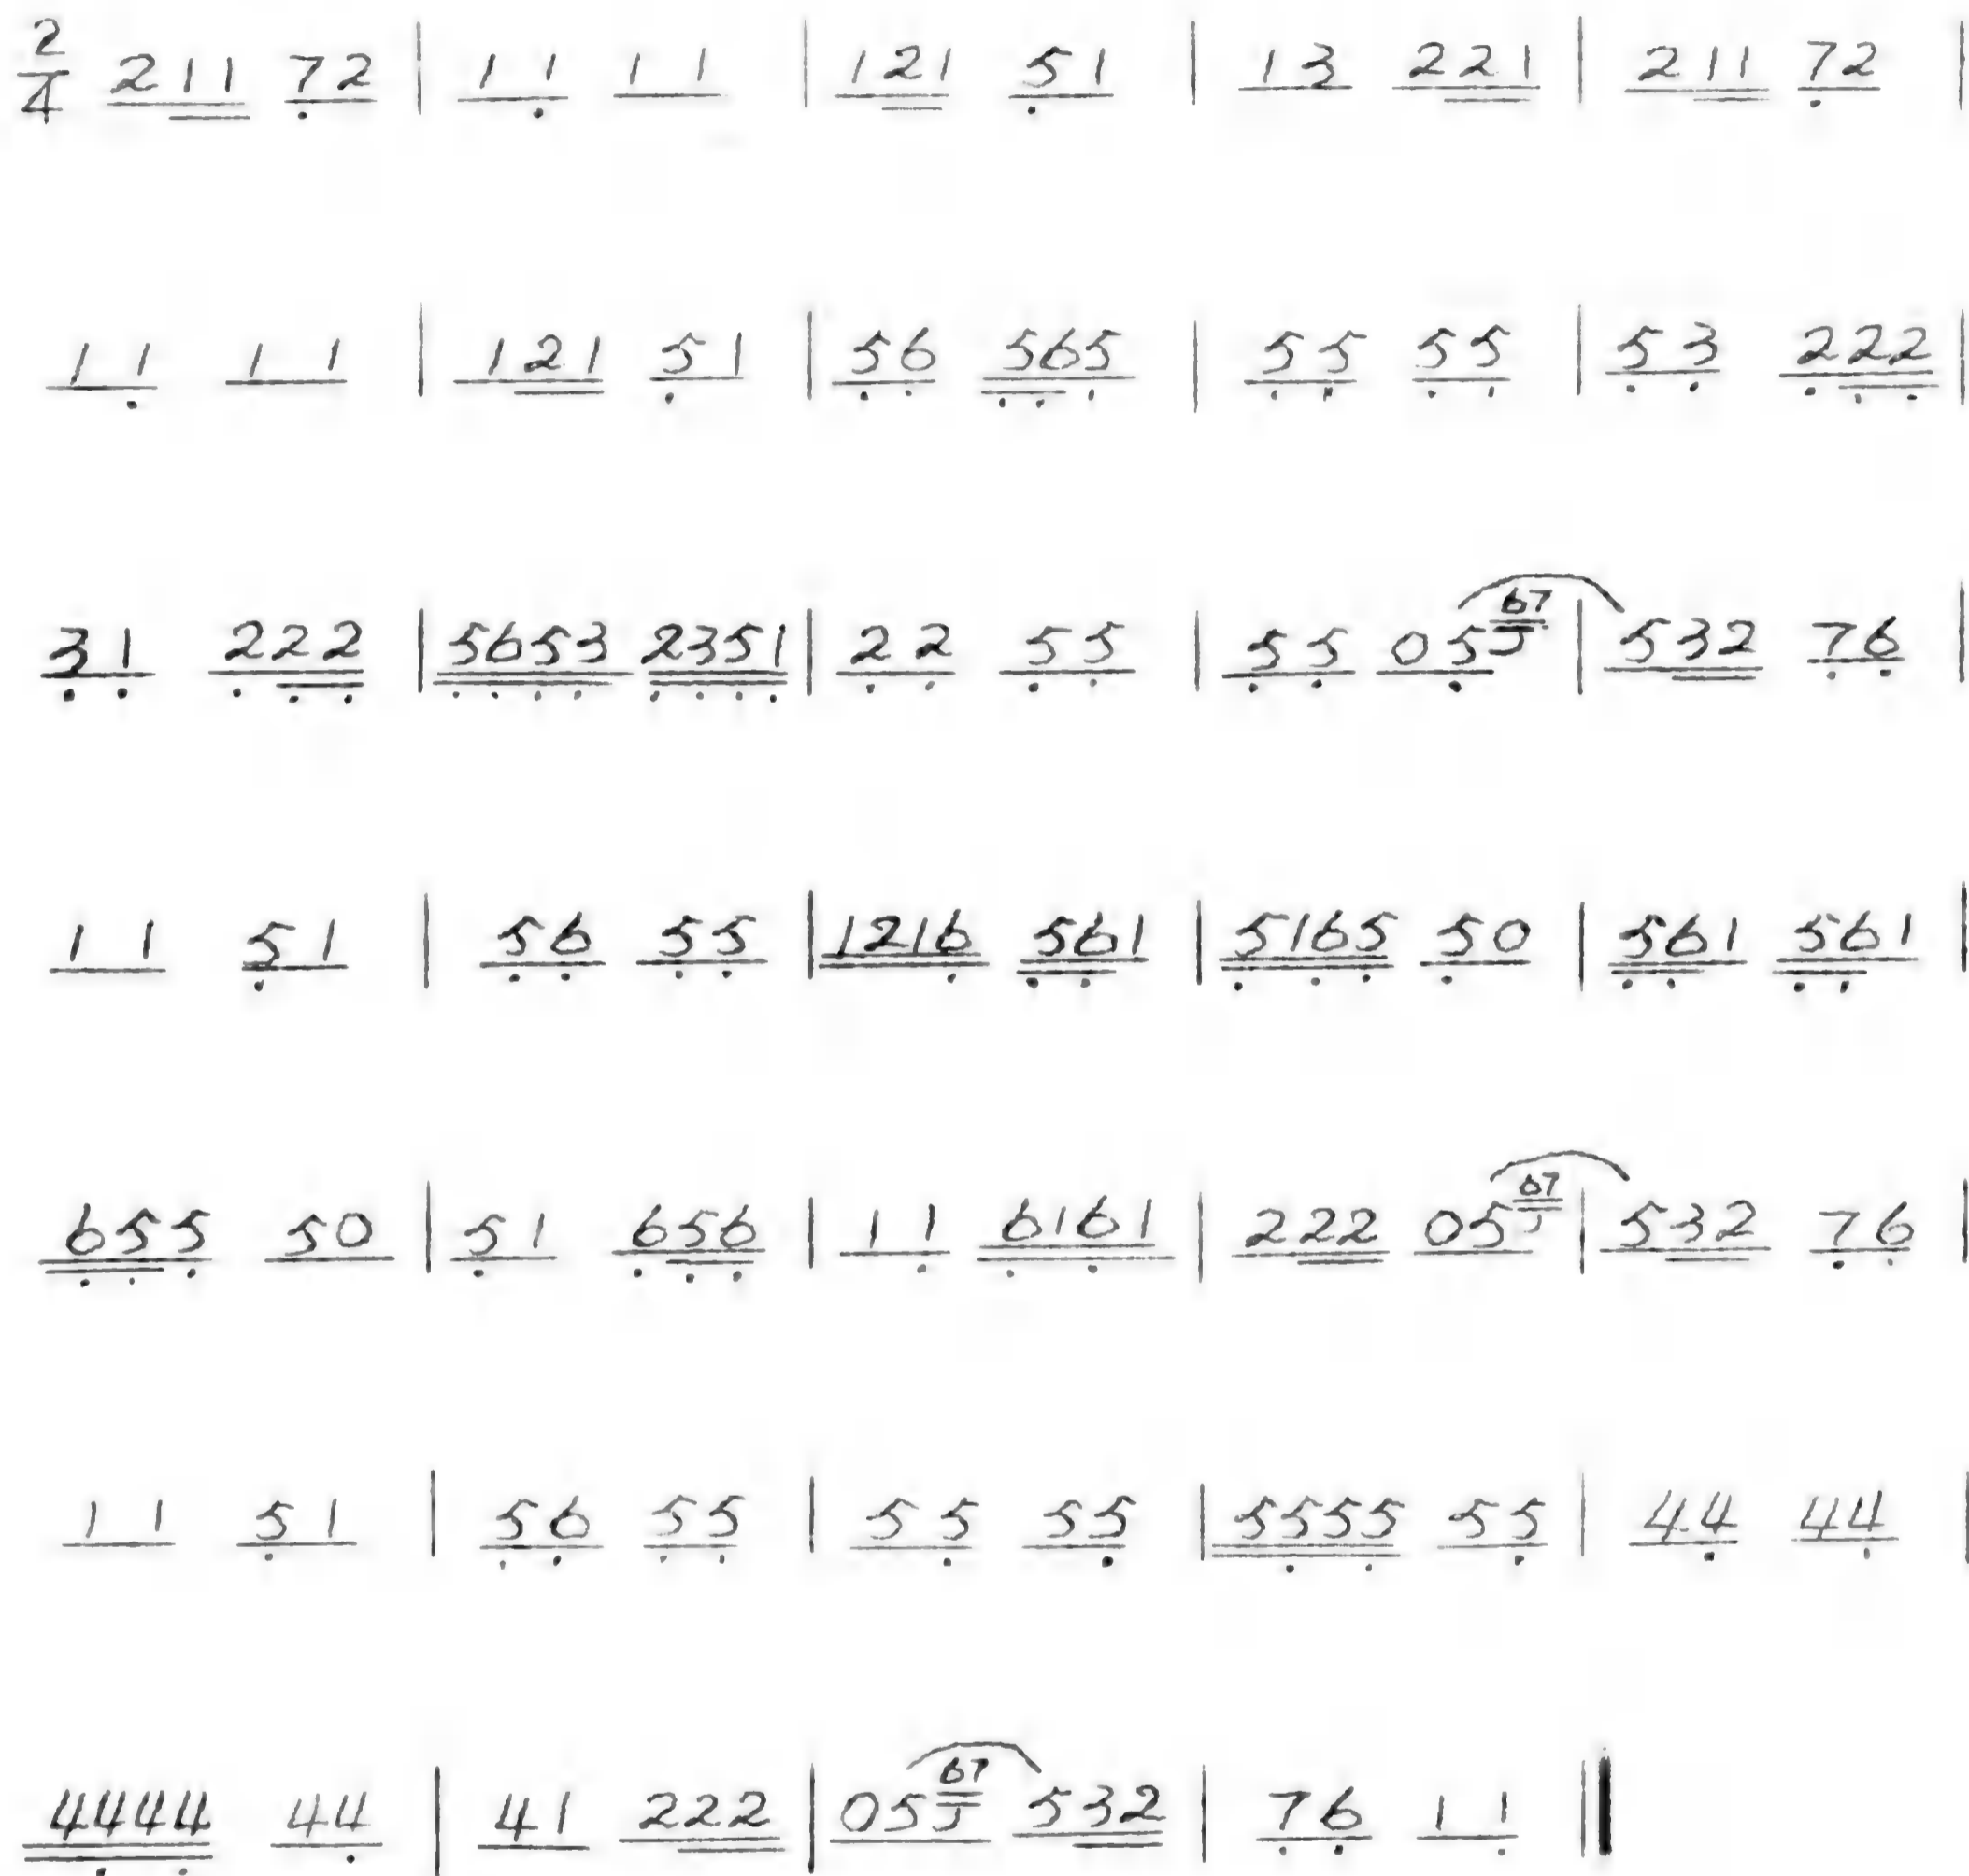 2/4 211 72 | 11 11 | 121 51 | 13 221 | 211 72 |
11 11 | 121 51 | 56 565 | 55 55 | 53 222 |
31 222 | 5653 2351 | 22 55 | 55 05 67 | 532 76 |
11 51 | 56 55 | 1216 561 | 5165 50 | 561 561 |
655 50 | 51 656 | 11 6161 | 222 05 67 | 532 76 |
11 51 | 56 55 | 55 55 | 5555 55 | 44 44 |
4444 44 | 41 222 | 05 67 532 | 76 11 ||